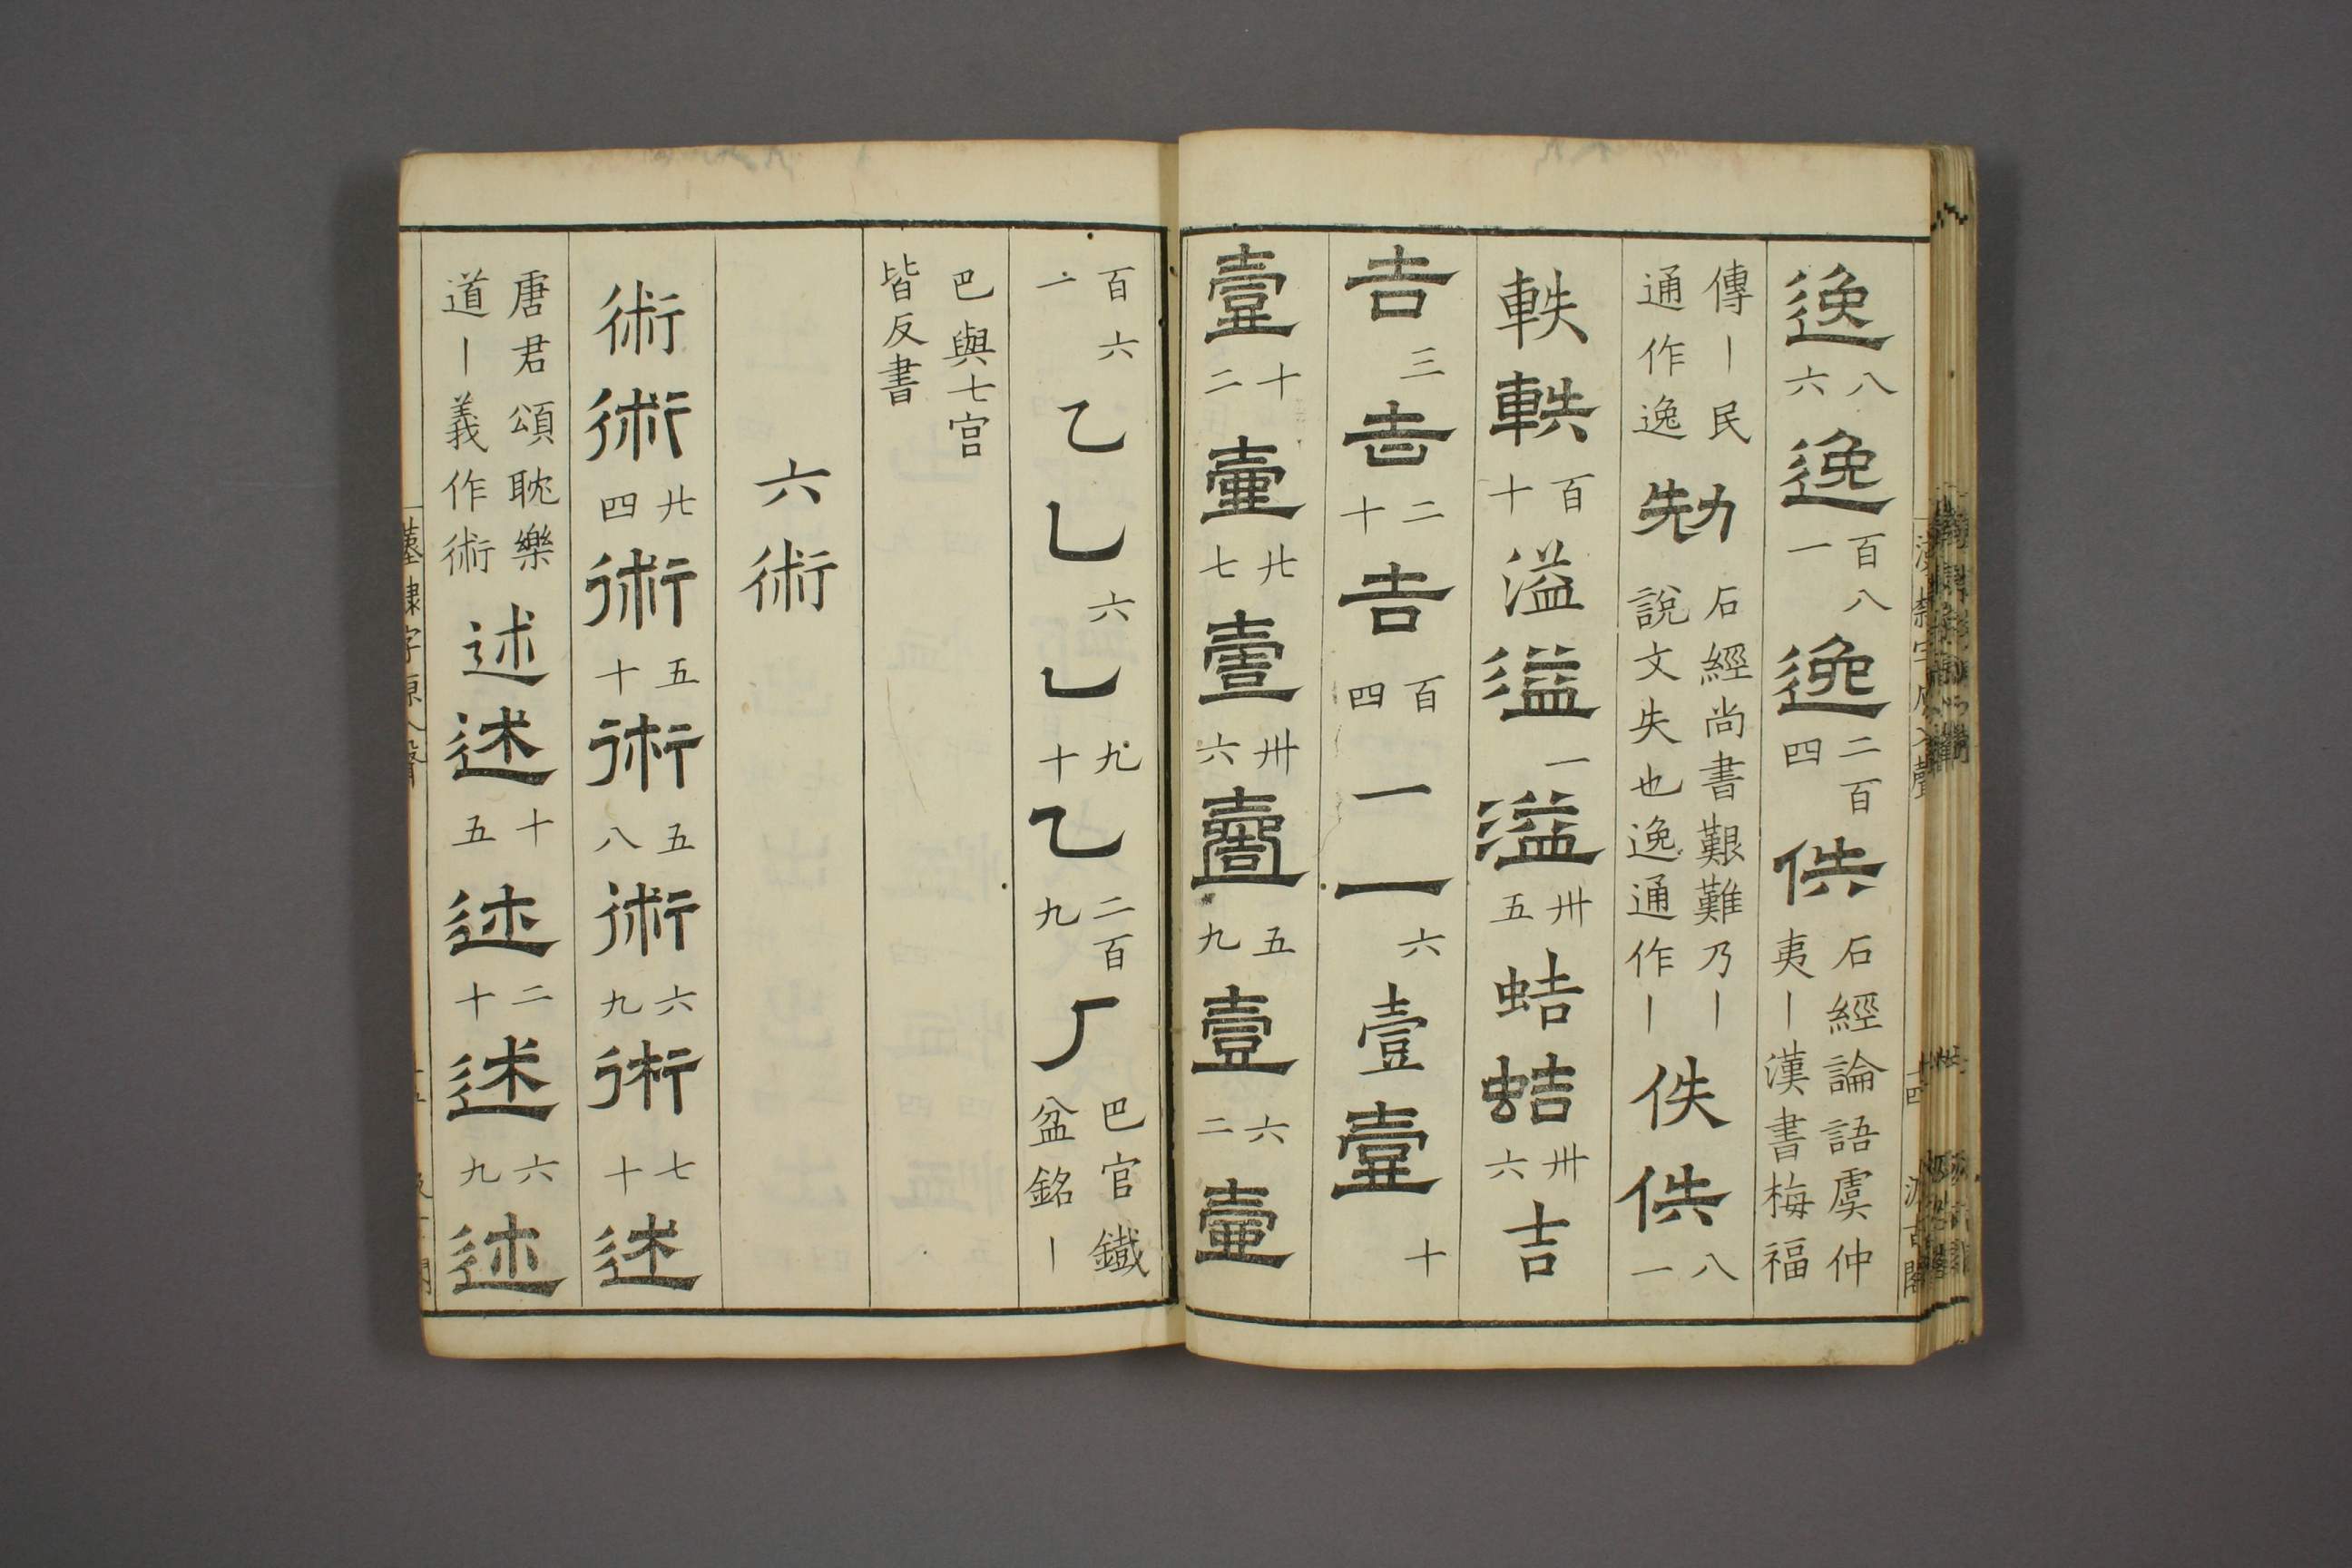 逸八六逸百八一逸二百四佚石經論語虞仲夷丨漢書梅福
傳丨民通作逸𠡠石經尚書艱難乃丨說文失也逸通作丨佚佚八一
軼軼百十溢溢一溢卅五蛣蛣卅六吉
吉三吉二十吉百四一一六壹壹十
壹十二壹廿七壹卅六壹五九壹六二壹
百六一乙乙六乙九十乙二百九𠃋巴官鐵盆銘丨
巴與七官皆反書
六術
術術廿四術五十術五八術六九術七十述
唐君頌耽樂道丨義作術述述十五述二十述六九述
漢隸字原入聲
十四
汲古閣